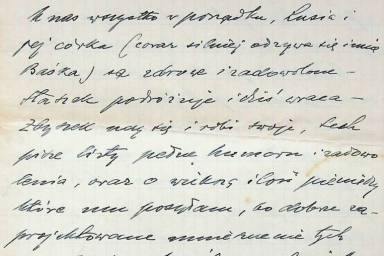 U nas wszystko w porządku, Lusia i
jej córka (coraz silniej odzywa się imię
Baśka) są zdrowe i zadowolone –
Staszek podróżuje i dziś wraca –
Zbyszek uczy się i robi swoje, Lech
pisze listy pełne humoru i zadowo
lenia, oraz o większą ilość pieniędzy
które mu posyłam, bo dobrze za-
projektowane umieszczenie tych